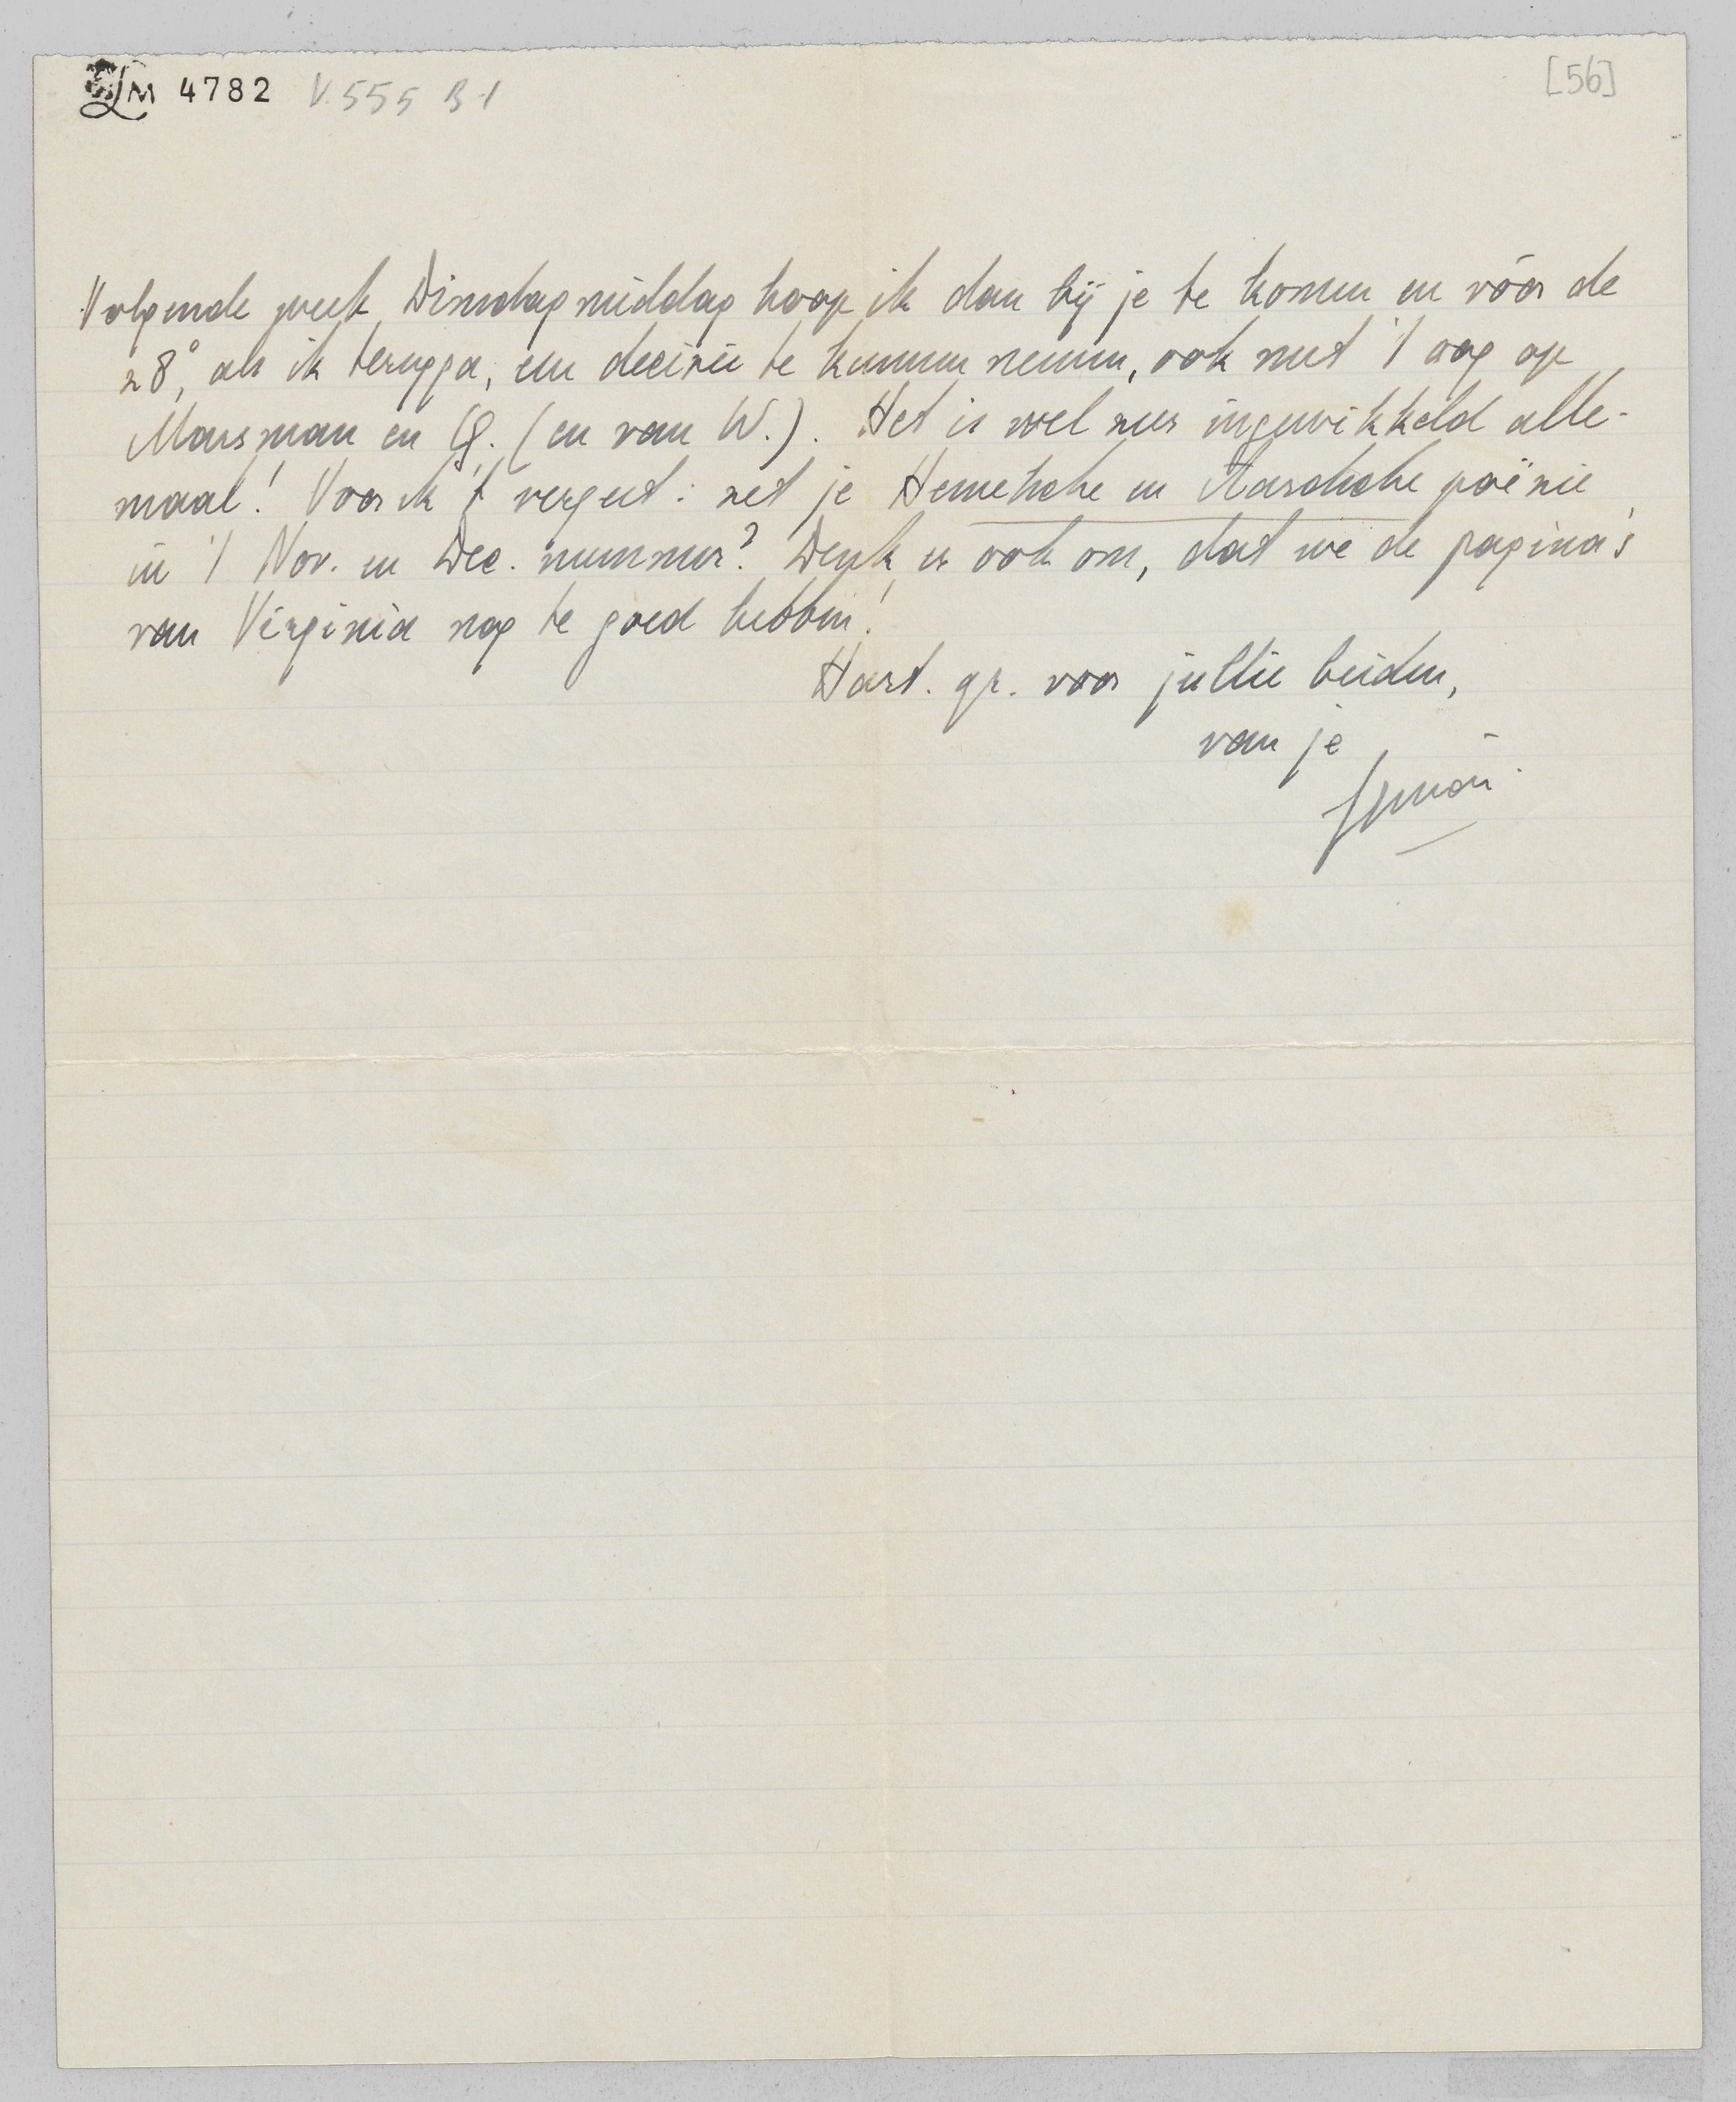 LM 4782 V. 555 B 1
[56]
Volgende week Dinsdagmiddag hoop ik dan bij je te komen en vóór de
28°, als ik terugga, een decisie te kunnen nemen, ook met 't oog op
Marsman en G. (en van W.). Het is wel zeer ingewikkeld alle-
maal! Voor ik 't vergeet: zet je Hemelsche en Aardsche poëzie
in 't Nov. en Dec. nummer? Denk er ook om, dat we de pagina's
van Virginia nog te goed hebben!
Hart. gr. voor jullie beiden,
van je
Simon.